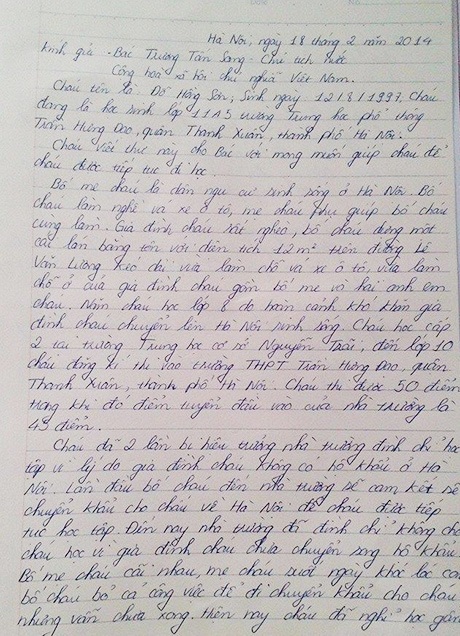 Hà Nội, ngày 18 tháng 2 năm 2014
Kính gửi - Bác Trương Tấn Sang - Chủ tịch nước
Cộng hoà xã hội chủ nghĩa Việt Nam.
Cháu tên là: Đỗ Hồng Sơn, Sinh ngày 12/8/1997, Cháu
đang là học sinh lớp 11A5 trường trung học phổ thông
Trần Hưng Đạo, quận Thanh Xuân, thành phố Hà Nội.
Cháu viết thư này cho Bác với mong muốn giúp cháu để
cháu được tiếp tục đi học.
Bố mẹ cháu là dân ngụ cư sinh sống ở Hà Nội. Bố
cháu làm nghề vá xe ô tô, mẹ cháu phụ giúp bố cháu
cùng làm. Gia đình cháu rất nghèo, bố cháu dựng một
cái lán bằng tôn với diện tích 12m² trên đường Lê
Văn Lương kéo dài vừa làm chỗ vá xe ô tô, vừa làm
chỗ ở của gia đình cháu gồm bố mẹ và hai anh em
cháu. Năm cháu học lớp 8 do hoàn cảnh khó khăn gia
đình cháu chuyển lên Hà Nội sinh sống. Cháu học cấp
2 tại trường Trung học cơ sở Nguyễn Trãi, đến lớp 10
cháu đăng kí thi vào trường THPT Trần Hưng Đạo, quận
Thanh Xuân, thành phố Hà Nội. Cháu thi được 50 điểm
trong khi đó điểm tuyển đầu vào của nhà trường là
43 điểm.
Cháu đã 2 lần bị hiệu trưởng nhà trường đình chỉ học
tập vì lý do gia đình cháu không có hộ khẩu ở Hà
Nội. Lần đầu bố cháu đến nhà trường sẽ cam kết sẽ
chuyển khẩu cho cháu về Hà Nội để cháu được tiếp
tục học tập. Đến nay nhà trường đã đình chỉ không cho
cháu học vì gia đình cháu chưa chuyển xong hộ khẩu.
Bố mẹ cháu cãi nhau, mẹ cháu suốt ngày khóc lóc còn
bố cháu bỏ cả công việc để đi chuyển khẩu cho cháu
nhưng vẫn chưa xong. Hiện nay cháu đã nghỉ học gần